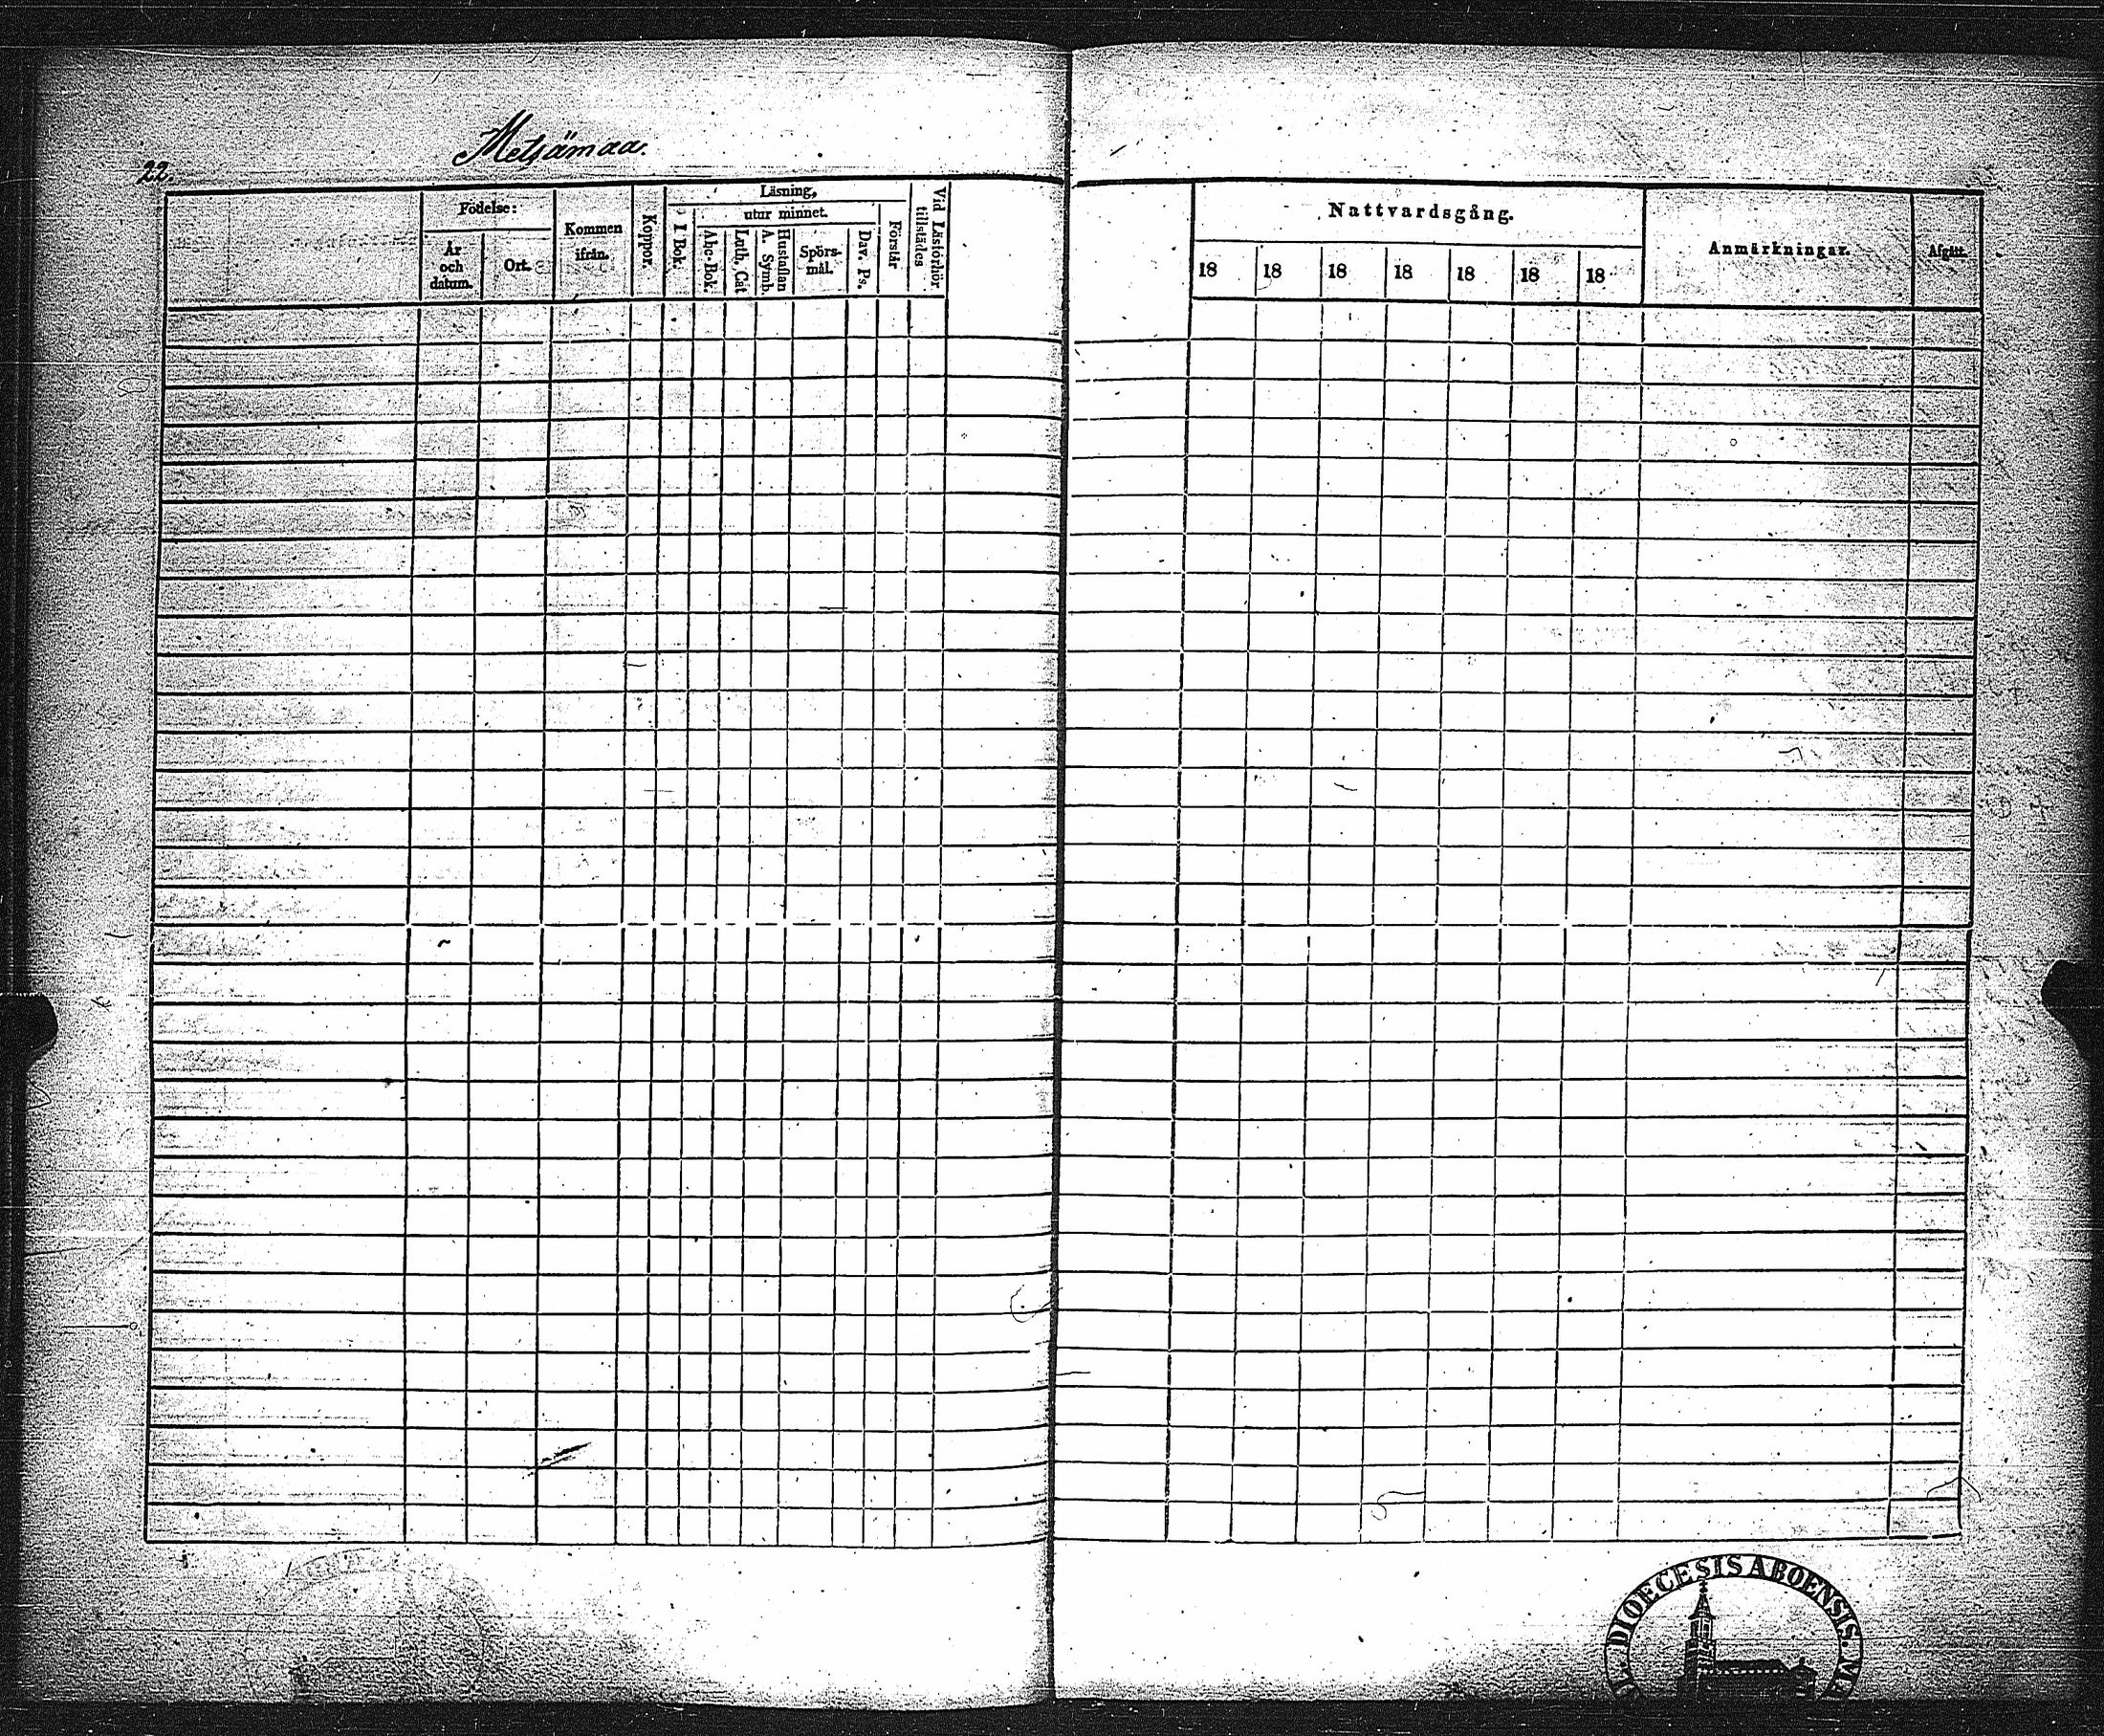 Metsämaa.
22.
Födelse:
År och datum.
Ort.
Kommen ifrån.
Koppor.
Läsning,
I Bok.
utur minnet.
Abc-Bok.
Luth. Cat
A. Symb.
Hustaflan
Spörs-mål.
Dav. Ps.
Förstår
Vid Läsförhör tillstädes
Nattvardsgång.
18 18 18 18 18 18 18
Anmärkningar.
Afgått.
DIOECESIS ABOENSIS. M